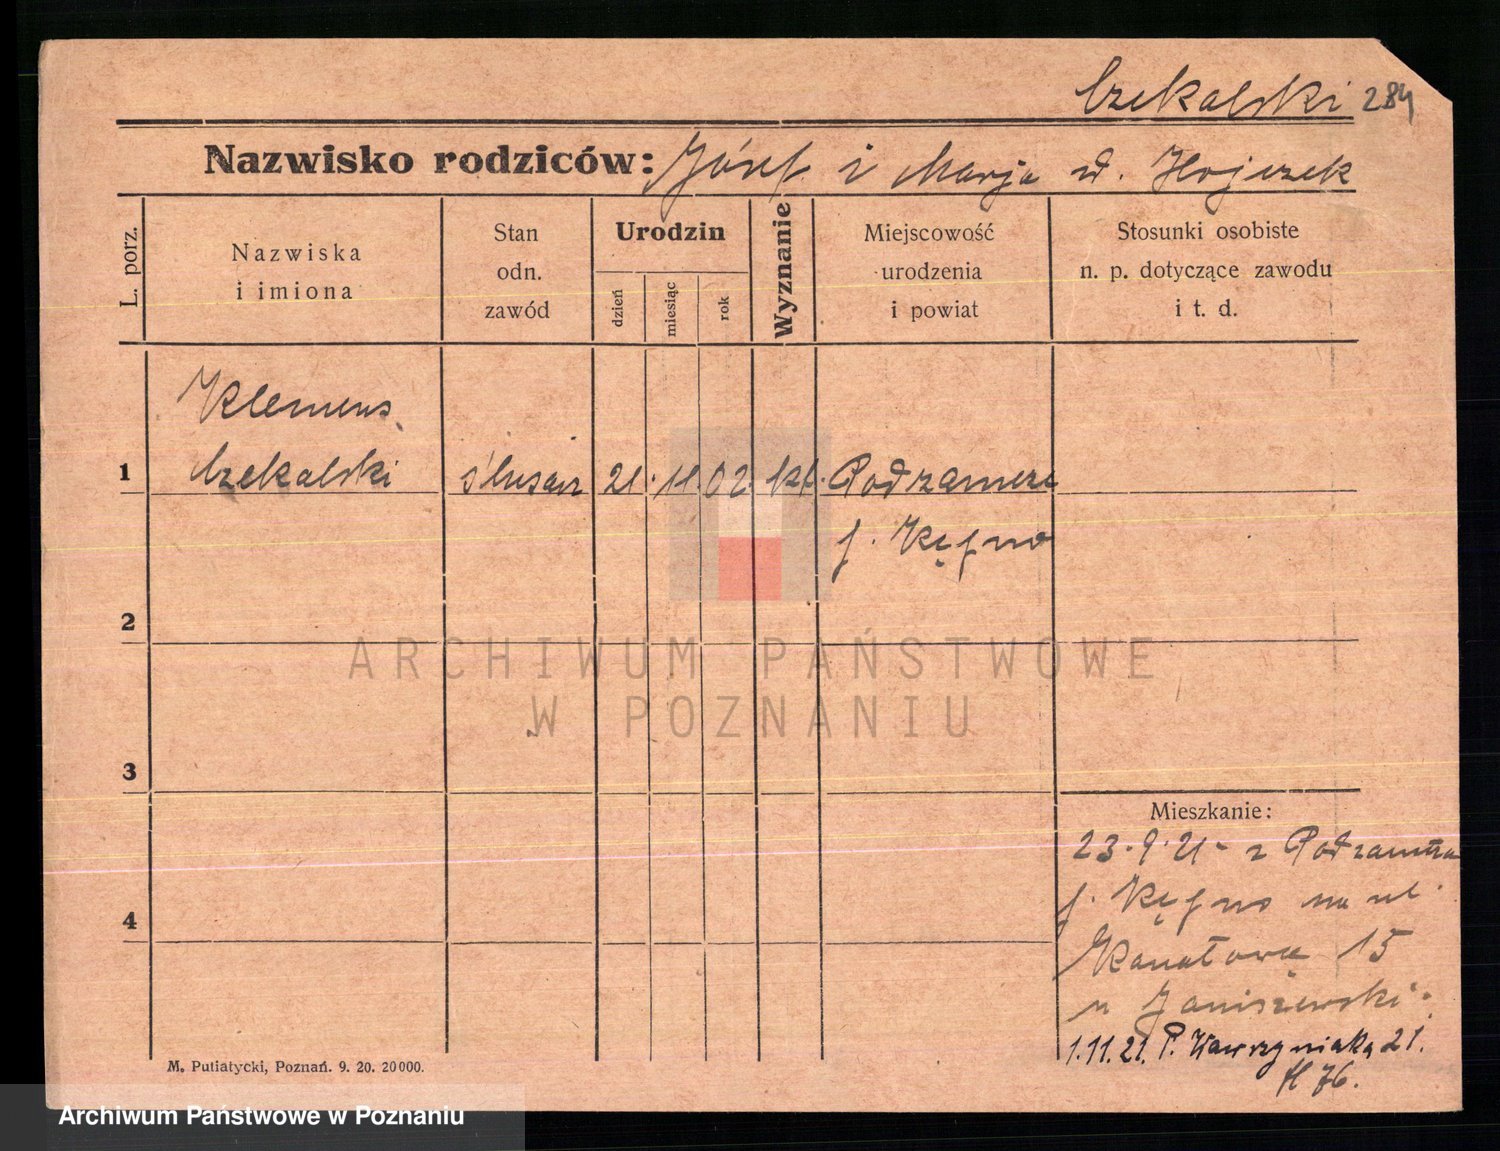 Czekalski 284
Nazwisko rodziców: Józef i Marja z d.
L. porz.
Nazwiska
i imiona
Stan
odn.
zawód
Urodzin
dzień
miesiąc
rok
Wyznanie
Miejscowość
urodzenia
i powiat
Stosunki osobiste
n. p. dotyczące zawodu
i t. d.
Klemens
1 Czekalski ślusarz 21. 11. 02. kat. Podzamcze
p. Kępno
2
3
4
Mieszkanie:
23.9.21 - z Podzamcza
p. Kępno na ul.
Kanałową 15
u Janiszewski.
1.11.21. P. Wawrzyniaka 21.
H 76.
M. Putiatycki, Poznań. 9. 20. 20000.
ARCHIWUM PAŃSTWOWE
W POZNANIU
Archiwum Państwowe w Poznaniu